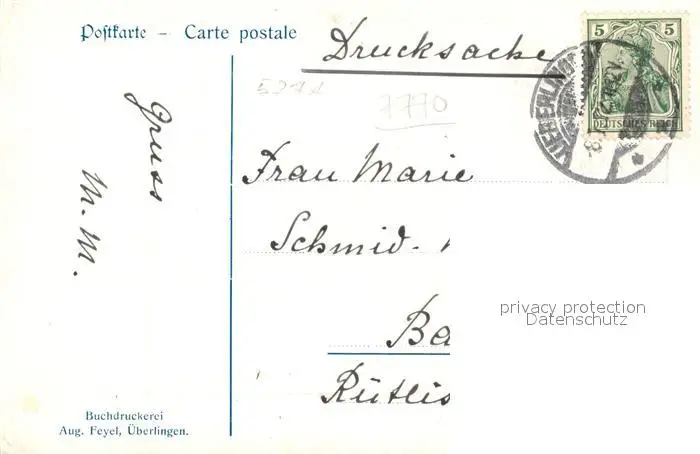 Postkarte – Carte postale
Drucksache
5 5
DEUTSCHES REICH
7770
Gruss
M. M.
Frau Marie
Schmid.
Ba
Rütlis
privacy protection
Datenschutz
Buchdruckerei
Aug. Feyel, Überlingen.